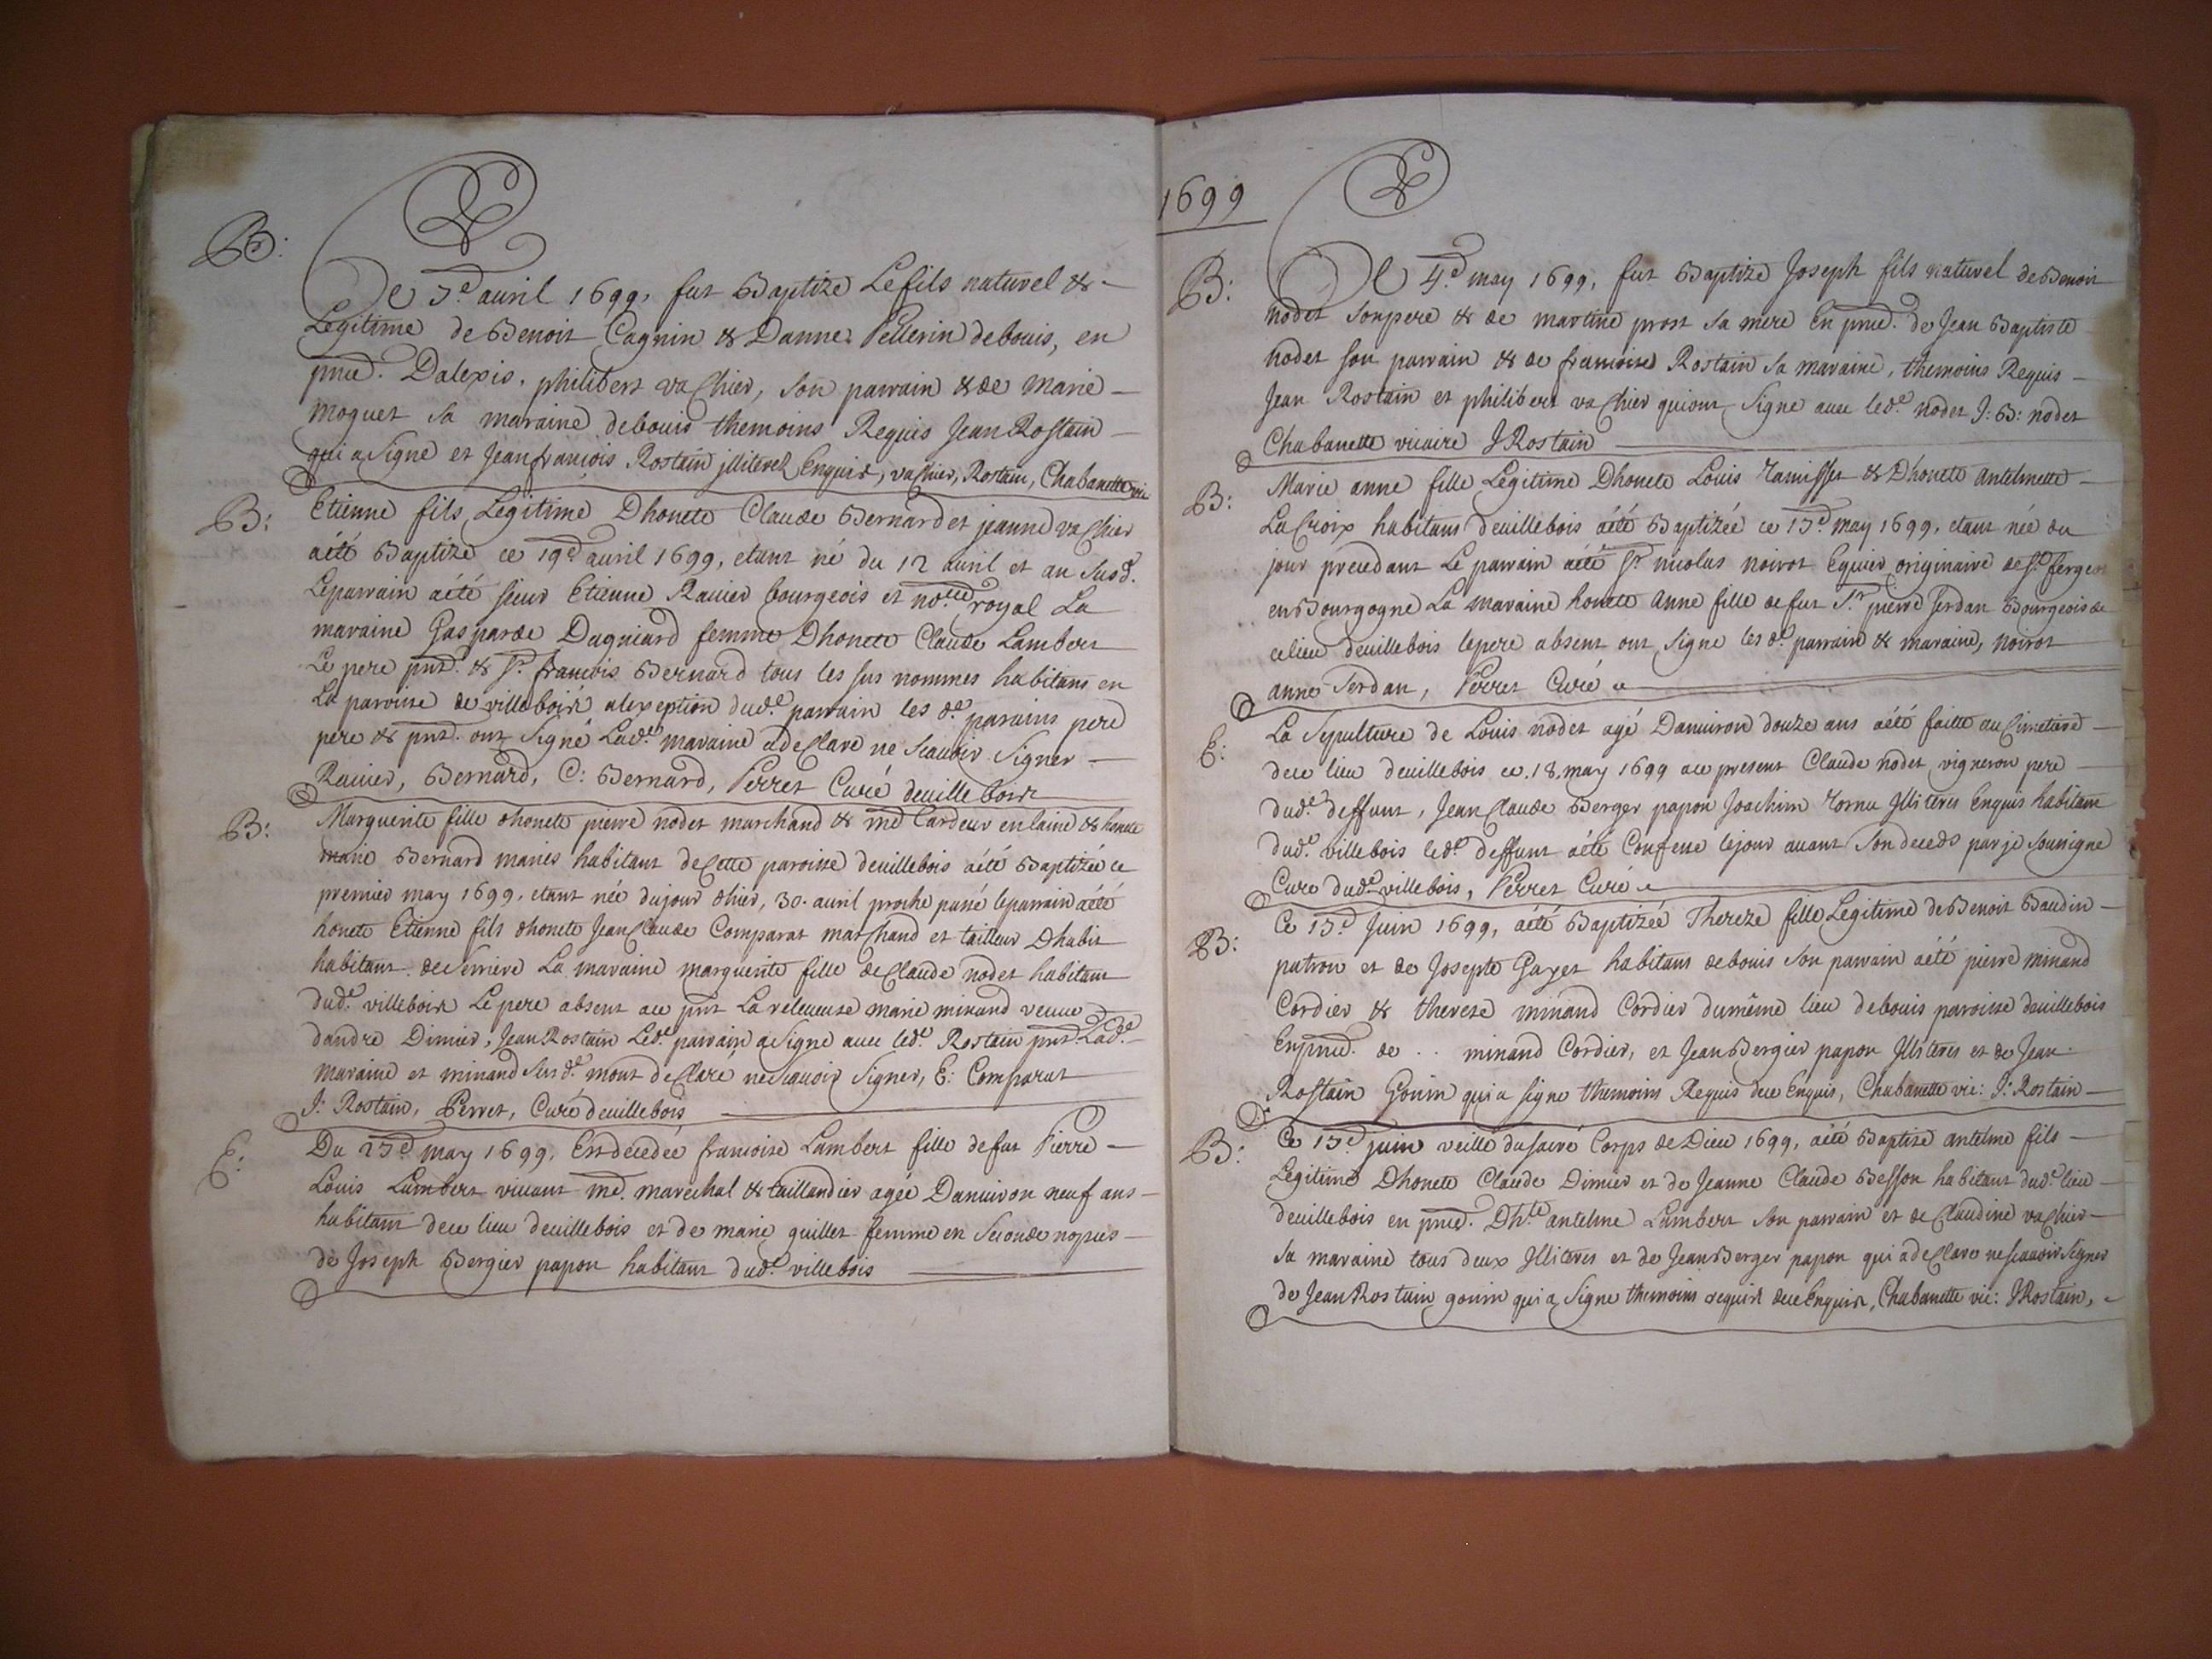 B:
Le 3e. avril 1699, fut Baptize Le fils naturel &
Legitime de Benoit Cagnin & Danne Pellerin debouis, en
pnce. Dalexis, philibert vachier, son parrain & de Marie
moguet sa maraine debouis themoins Requis Jean Rostain
qui a Signe et Jean francois Rostain jlliterez Enquis, vachier, Rostain, Chabanette vic
B:
Etienne fils Legitime Dhonete Claude Bernard et jeanne vachier
aété Baptize ce 19e avril 1699, etant né du 12 avril et an Susd.
Leparrain aété sieur Etienne Ravier bourgeois et nore. royal La
maraine Gasparde Dugniard femme Dhonete Claude Lambert
Le pere pnt. & Sr. francois Bernard tous les sus nommes habitans en
La paroisse de villebois alexeption dud. parrain les d. parains pere
pere & pnt. ont Signé Lade. maraine adeclare ne Scavoir Signer
Ravier, Bernard, C: Bernard, Perret Curé devillebois
B:
Marguerite fille dhonete pierre nodet marchand & me Cardeur en laine & honete
marie Bernard mariés habitant decette paroisse devillebois aété Baptizée ce
premier may 1699, etant née dujour dhier, 30. avril proche passé leparrain aété
honete Etienne fils dhonete Jean Claude Comparat marchand et tailleur Dhabit
habitant de Serriere La maraine marguerite fille de Claude nodet habitant
dud. villebois Le pere absent au pnt La releveuse marie minand veuve
dandre Dimier, Jean Rostain Led. parrain a Signe avec led. Rostain pnt. Lade.
maraine et minand Susd. mont declaré ne Scavoir Signer, E: Comparat
J: Rostain, Perret, Curé devillebois
E:
Du 23e may 1699, Est decedée francoise Lambert fille de fut Pierre
Louis Lambert vivant me. marechal & taillandier agée Danviron neuf ans
habitant dece lieu devillebois et de marie guillet femme en Seconde nopces
de Joseph Bergier papon habitant dud. villebois
1699
B:
Le 4e may 1699, fut Baptize Joseph fils naturel de Benoit
nodet son pere & de martine prost sa mere En pnce. de Jean Baptiste
nodet son parrain & de francoise Rostain sa maraine, themoins Requis
Jean Rostain et philibert vachier qui ont Signe avec led. nodet J: B: nodet
Chabanette vicaire J Rostain
B:
Marie anne fille Legitime Dhonete Louis & Dhonete antelmette
La Croix habitans devillebois aété Baptizée ce 13e may 1699, etant née du
jour precedant Le parrain aété Sr nicolas noirot Equier originaire de St. fergeot
en Bourgogne La maraine honete Anne fille de fut Sr. pierre Jerdan Bourgeois de
celieu devillebois lepere absent ont Signe les d. parrain & maraine, noirot
anne Jerdan, Perret Curé
E:
La Sepulture de Louis nodet agé Danviron douze ans aété faitte au Cimetiere
dece lieu devillebois ce 18, may 1699 au present Claude nodet vigneron pere
dud. deffunt, Jean Claude Berger papon Joachim Jlliteres Enquis habitant
dud. villebois led. deffunt aété Confesse lejour avant Son deceds par je Soussigne
Cure dud. villebois, Perret Curé
B:
Ce 13e Juin 1699, aété Baptizée Thereze fille Legitime de Benoit Baudin
patron et de Josepte Gayet habitans debouis Son parrain aété pierre minand
Cordier & therese minand Cordier dumême lieu debouis paroisse devillebois
En pnce. de . . minand Cordier, et Jean Bergier papon Jlliteres et de Jean
Rostain Gouin qui a signe themoins Requis dece Enquis, Chabanette vic: J: Rostain
B:
Ce 13e juin veille du sacré Corps de Dieu 1699, aété Baptise antelme fils
Legitime Dhonete Claude Dimier et de Jeanne Claude Besson habitant dud. lieu
devillebois en pnce. Dhte. antelme Lambert Son parrain et de Claudine vachier
Sa maraine tous deux Jlliteres et de Jean Berger papon qui adeclare nescavoir Signer
de Jean Rostain gouin qui a Signe themoins requis dece Enquis, Chabanette vic: J Rostain,